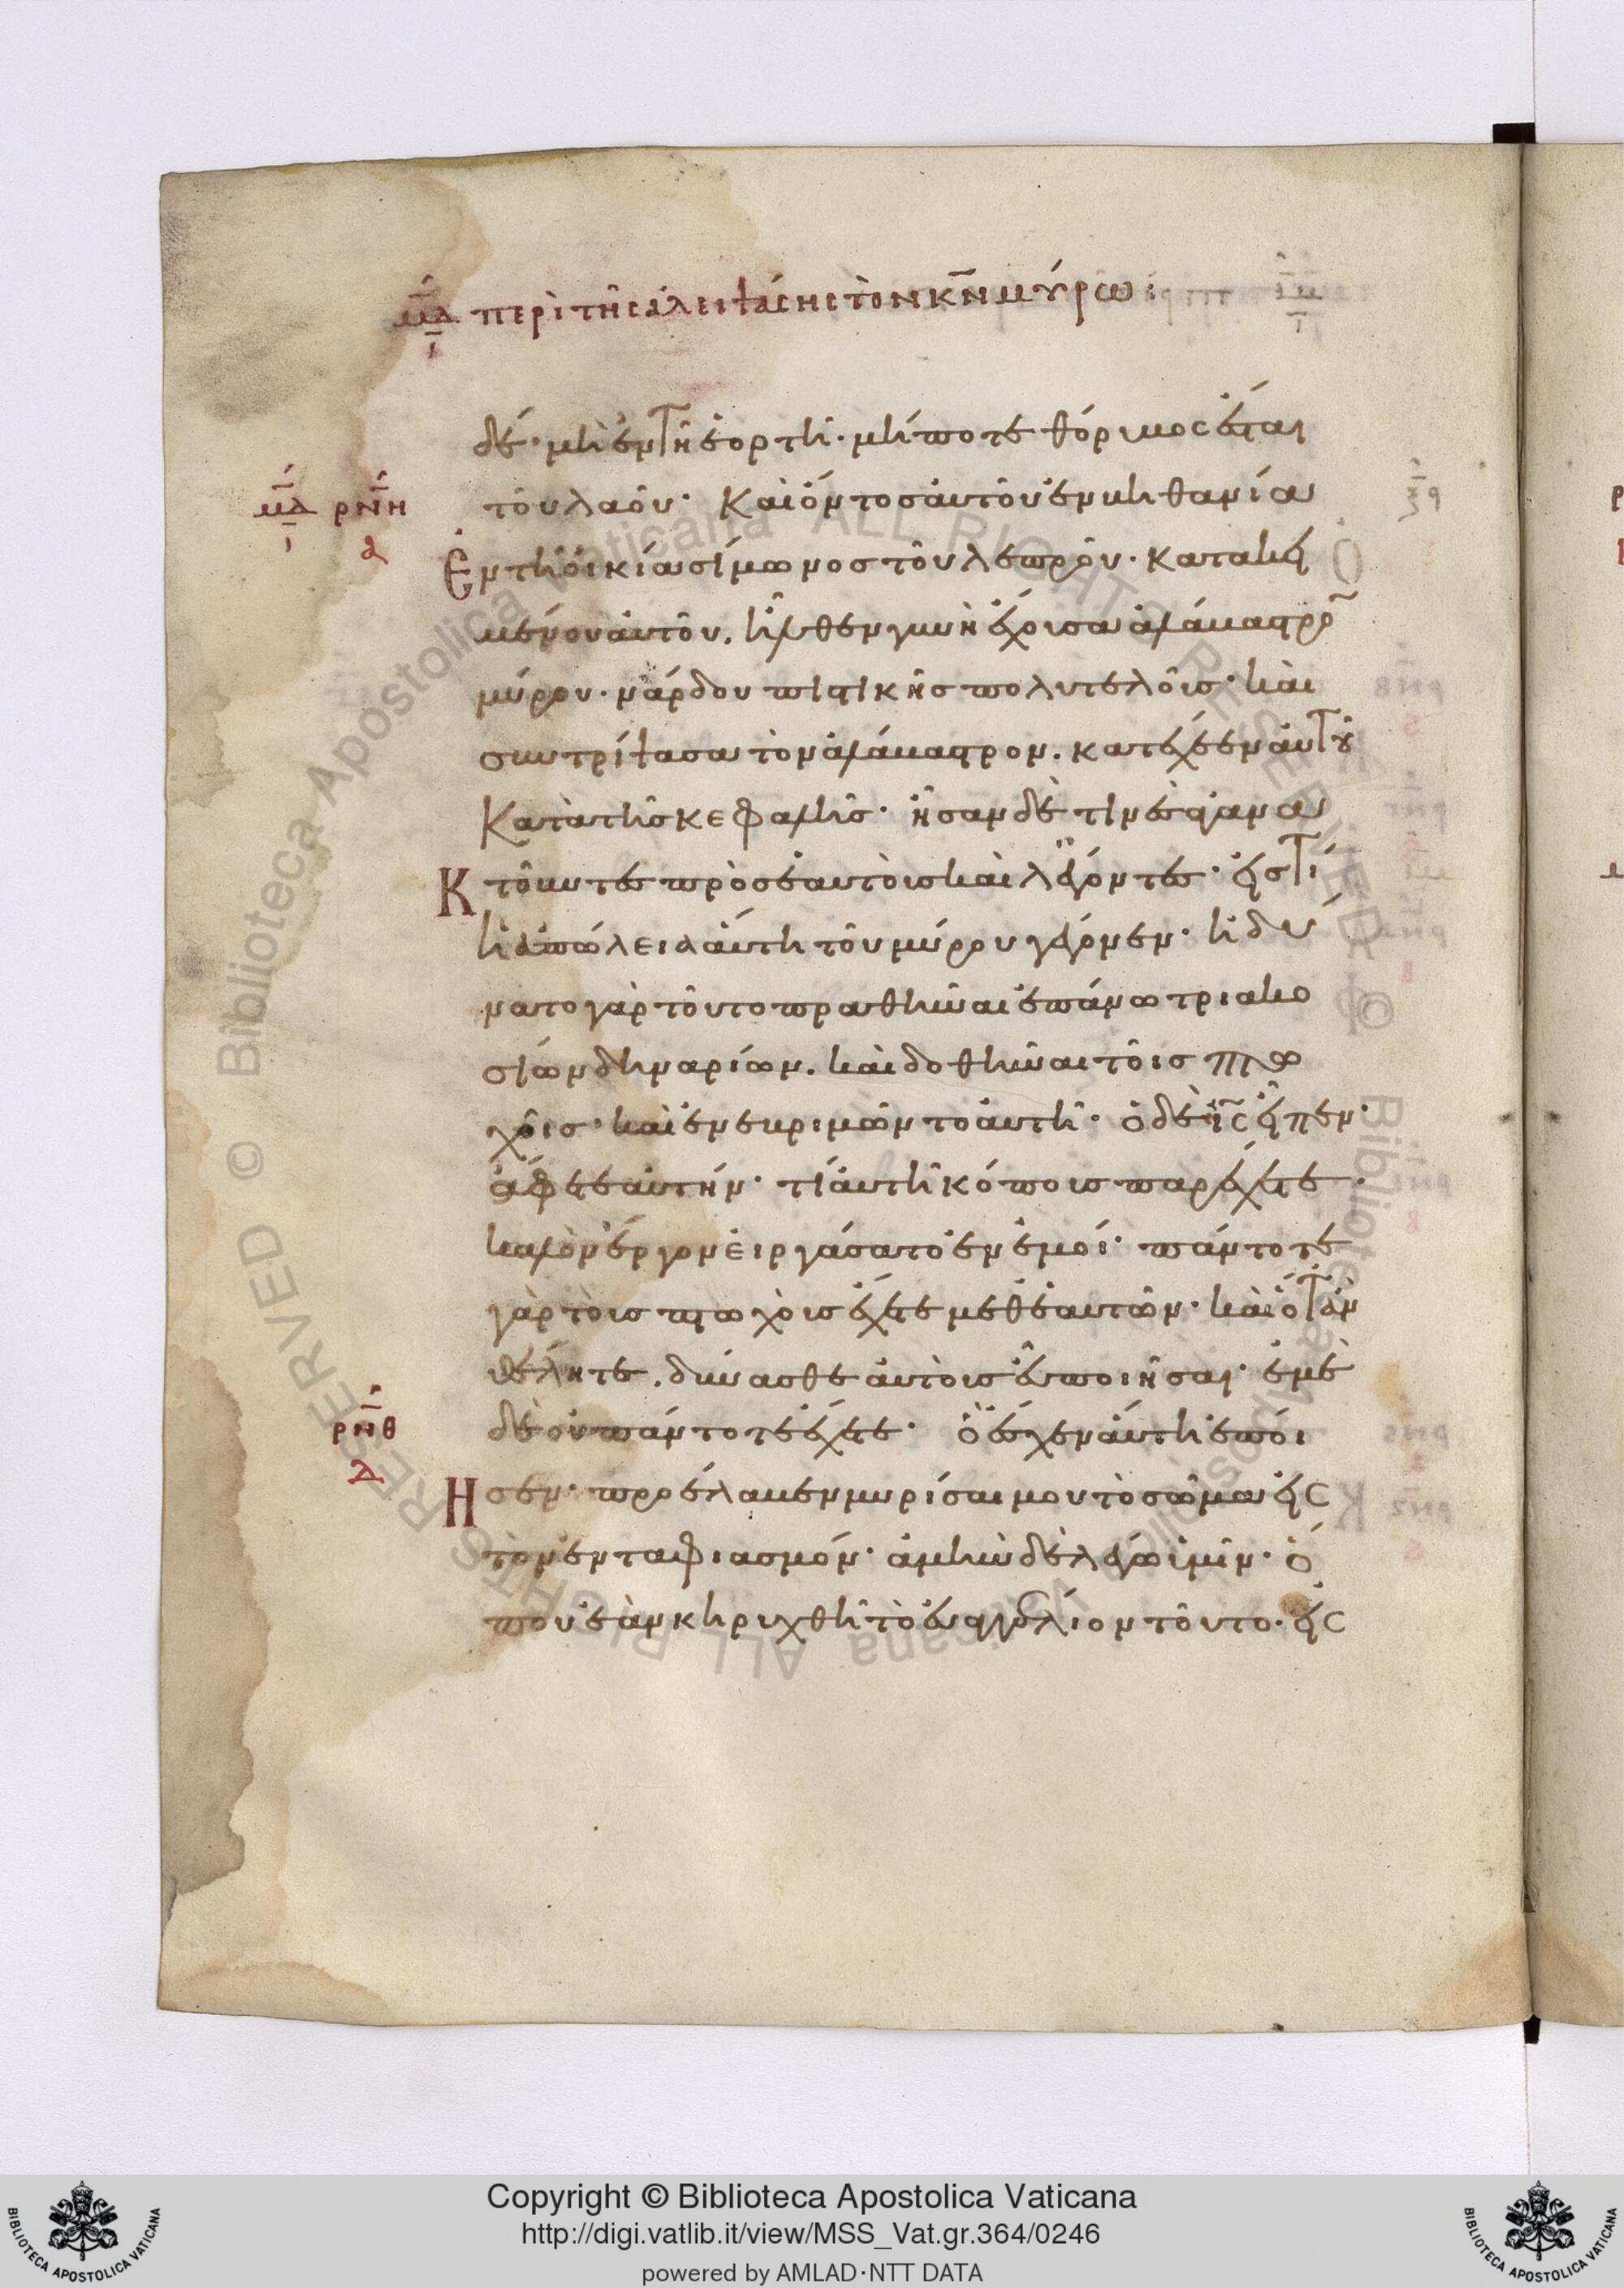 μδ περὶ τῆς ἀλειψάσης τὸν κν μύρω:
δέ· μὴ ἐν τῆ ἑορτῆ· μήποτε θόρυβος ἔσται
τοῦ λαοῦ· Καὶ ὄντος αὐτοῦ ἐν βηθανία
μδ ρνη
α
Ἐν τῆ οἰκία σίμωνος τοῦ λεπροῦ· κατακει
μένου αὐτοῦ. ἦλθεν γυνὴ ἔχουσα ἀλάβαστρον
μύρου· νάρδου πιστικῆς πολυτελοῦς· καὶ
συντρίψασα τὸν ἀλάβαστρον. κατέχεεν αὐτοῦ
κατὰ τῆς κεφαλῆς· ἦσαν δέ τινες ἀγανα
Κτοῦντες πρὸς ἑαυτοὺς καὶ λέγοντες· εἰς τί
ἡ ἀπώλεια αὕτη τοῦ μύρου γέγονεν· ἠδύ
νατο γὰρ τοῦτο πραθῆναι ἐπάνω τριακο
σίων δηναρίων. καὶ δοθῆναι τοῖς πτω
χοῖς· καὶ ἐνεβριμῶντο αὐτῆ· ὁ δὲ ις εἶπεν·
ἄφετε αὐτήν· τί αὐτῆ κόπους παρέχετε.
καλὸν ἔργον εἰργάσατο ἐν ἐμοί· πάντοτε
γὰρ τοὺς πτωχοὺς ἔχετε μεθ' ἑαυτῶν· καὶ ὅταν
θέλητε. δύνασθε αὐτοὺς εὖ ποιῆσαι· ἐμὲ
δὲ οὐ πάντοτε ἔχετε· ὃ ἔσχεν αὕτη ἐποί
ρνθ
δ
Ησεν· προέλαβεν μυρίσαι μου τὸ σῶμα εἰς
τὸν ἐνταφιασμόν· ἀμὴν δὲ λέγω ὑμῖν· ὅ
που ἐὰν κηρυχθῆ τὸ εὐαγγέλιον τοῦτο· εἰς
Copyright © Biblioteca Apostolica Vaticana
http://digi.vatlib.it/view/MSS_Vat.gr.364/0246
powered by AMLAD·NTT DATA